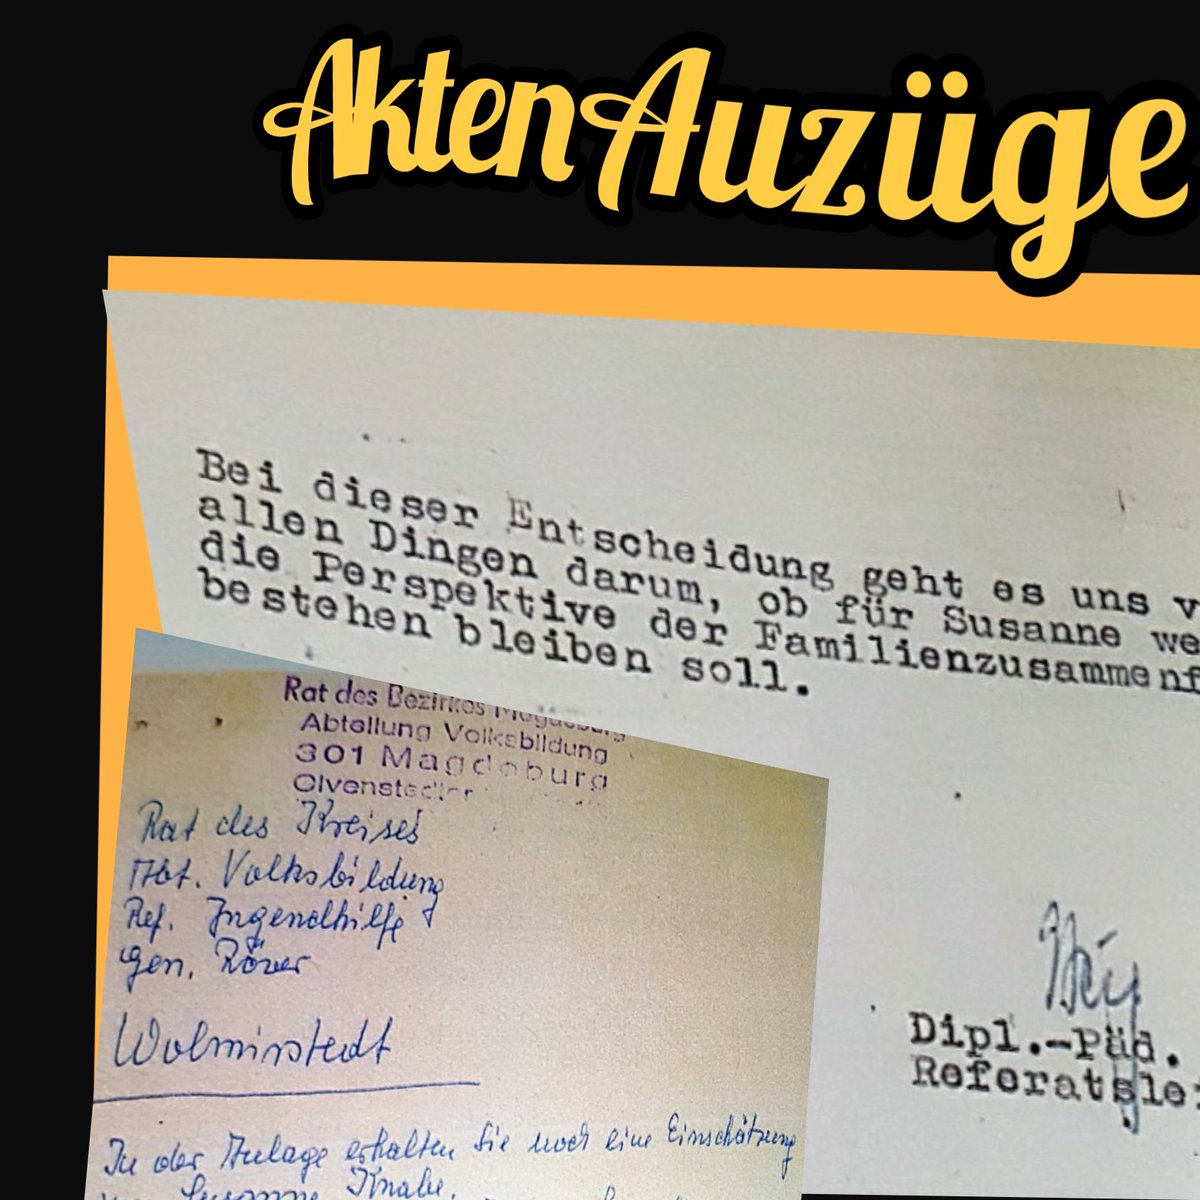 AktenAuzüge
Bei dieser Entscheidung geht es uns v
allen Dingen darum, ob für Susanne we
die Perspektive der Familienzusammenf
bestehen bleiben soll.
Rat des Bezirkes Magdeburg
Abteilung Volksbildung
301 Magdeburg
Olvenstedter
Rat des Kreises
Abt. Volksbildung
Ref. Jugendhilfe
Gen. Röver
Wolmirstedt
In der Anlage erhalten Sie noch eine Einschätzung
Susanne Knabe.
Dipl.-Päd.
Referatslei